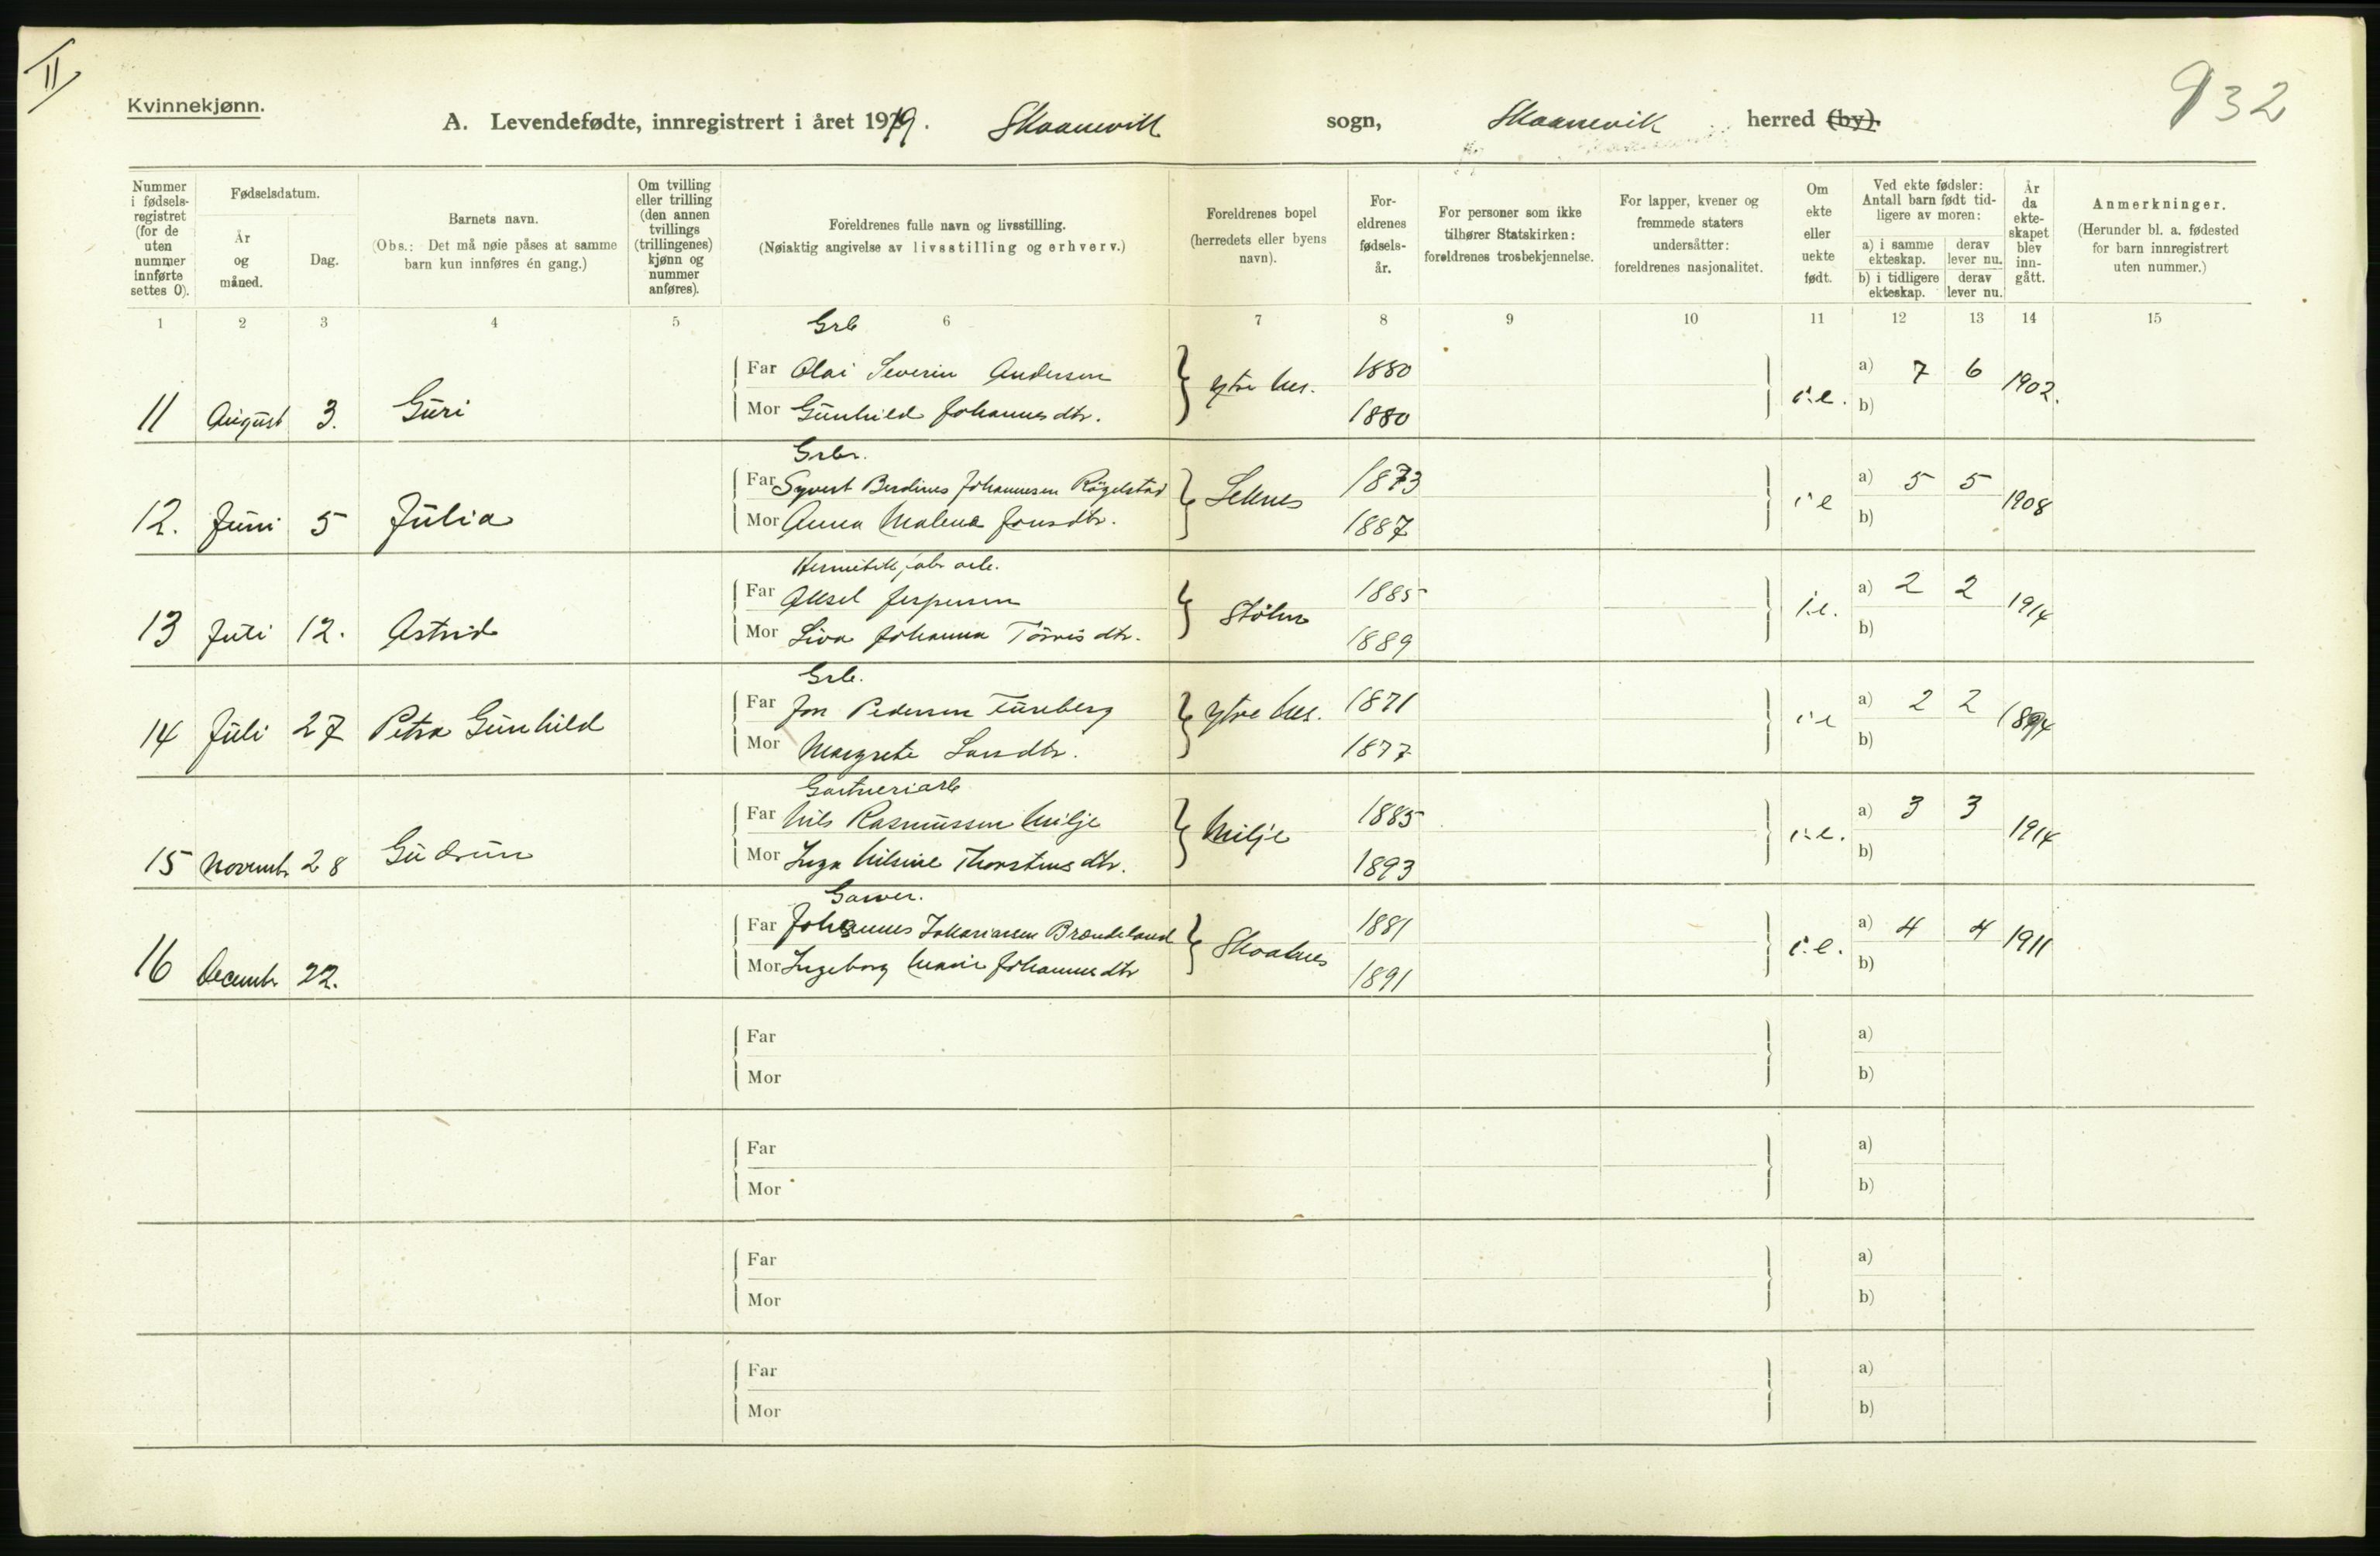 II
Kvinnekjønn.
A. Levendefødte, innregistrert i året 1919. Skaanevik sogn, Skaanevik herred (by).
932
Nummer i fødselsregistret (for de uten nummer innførte settes 0).
Fødselsdatum.
År og måned.
Dag.
Barnets navn.
(Obs.: Det må nøie påses at samme barn kun innføres én gang.)
Om tvilling eller trilling (den annen tvillings (trillingenes) kjønn og nummer anføres).
Foreldrenes fulle navn og livsstilling.
(Nøiaktig angivelse av livsstilling og erhverv.)
Foreldrenes bopel (herredets eller byens navn).
Foreldrenes fødselsår.
For personer som ikke tilhører Statskirken: foreldrenes trosbekjennelse.
For lapper, kvener og fremmede staters undersåtter: foreldrenes nasjonalitet.
Om ekte eller uekte født.
Ved ekte fødsler: Antall barn født tidligere av moren:
a) i samme ekteskap.
derav lever nu.
b) i tidligere ekteskap.
derav lever nu.
År da ekteskapet blev inngått.
Anmerkninger.
(Herunder bl. a. fødested for barn innregistrert uten nummer.)
1 2 3 4 5 6 7 8 9 10 11 12 13 14 15
Grb
Far Olai Severin Andersen 1880 a) 7 6
11 August 3. Guri Ytre hus. i.e. 1902.
Mor Gunhild Johannesdtr. 1880 b)
Grbr.
Far Syvert Berdines Johannesen Rögelstad 1873 a) 5 5
12. Juni 5 Julia Seknes i e 1908
Mor Anna Malena Jonsdtr. 1887 b)
Far Aksel Jespersen 1885 a) 2 2
13 Juli 12. Astrid Stölen i.e. 1914
Mor Liva Johanna Törrisdtr. 1889 b)
Grb.
Far Jon Pedersen Tureberg 1871 a) 2 2
14 Juli 27 Petra Gunhild Ytre hus. i e 1894
Mor Margrete Larsdtr. 1877 b)
Gartneriarb
Far Nils Rasmussen Milje 1885 a) 3 3
15 Novembr 28 Gudrun Milje i.e. 1914
Mor Inga Nilsine Thorstensdtr. 1893 b)
Garver.
Far Johannes Zakariassen Brændeland 1881 a) 4 4
16 Decembr 22. i.e. 1911
Mor Ingeborg Marie Johannesdtr 1891 b)
Far a)
Mor b)
Far a)
Mor b)
Far a)
Mor b)
Far a)
Mor b)